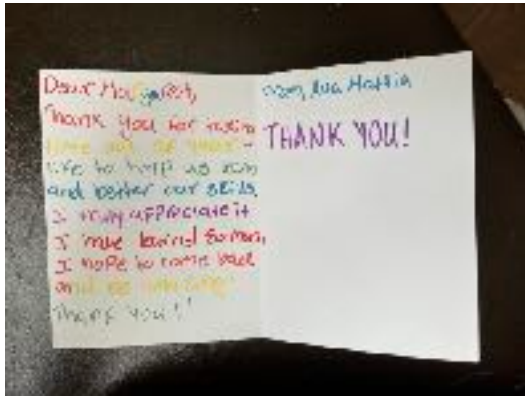 Dear Margaret,
Thank you for taking
time out of your
life to help us
and better our skills.
I really appreciate it
I have learned so much,
I hope to come back
and
Thank you!!
From, Ava
THANK YOU!